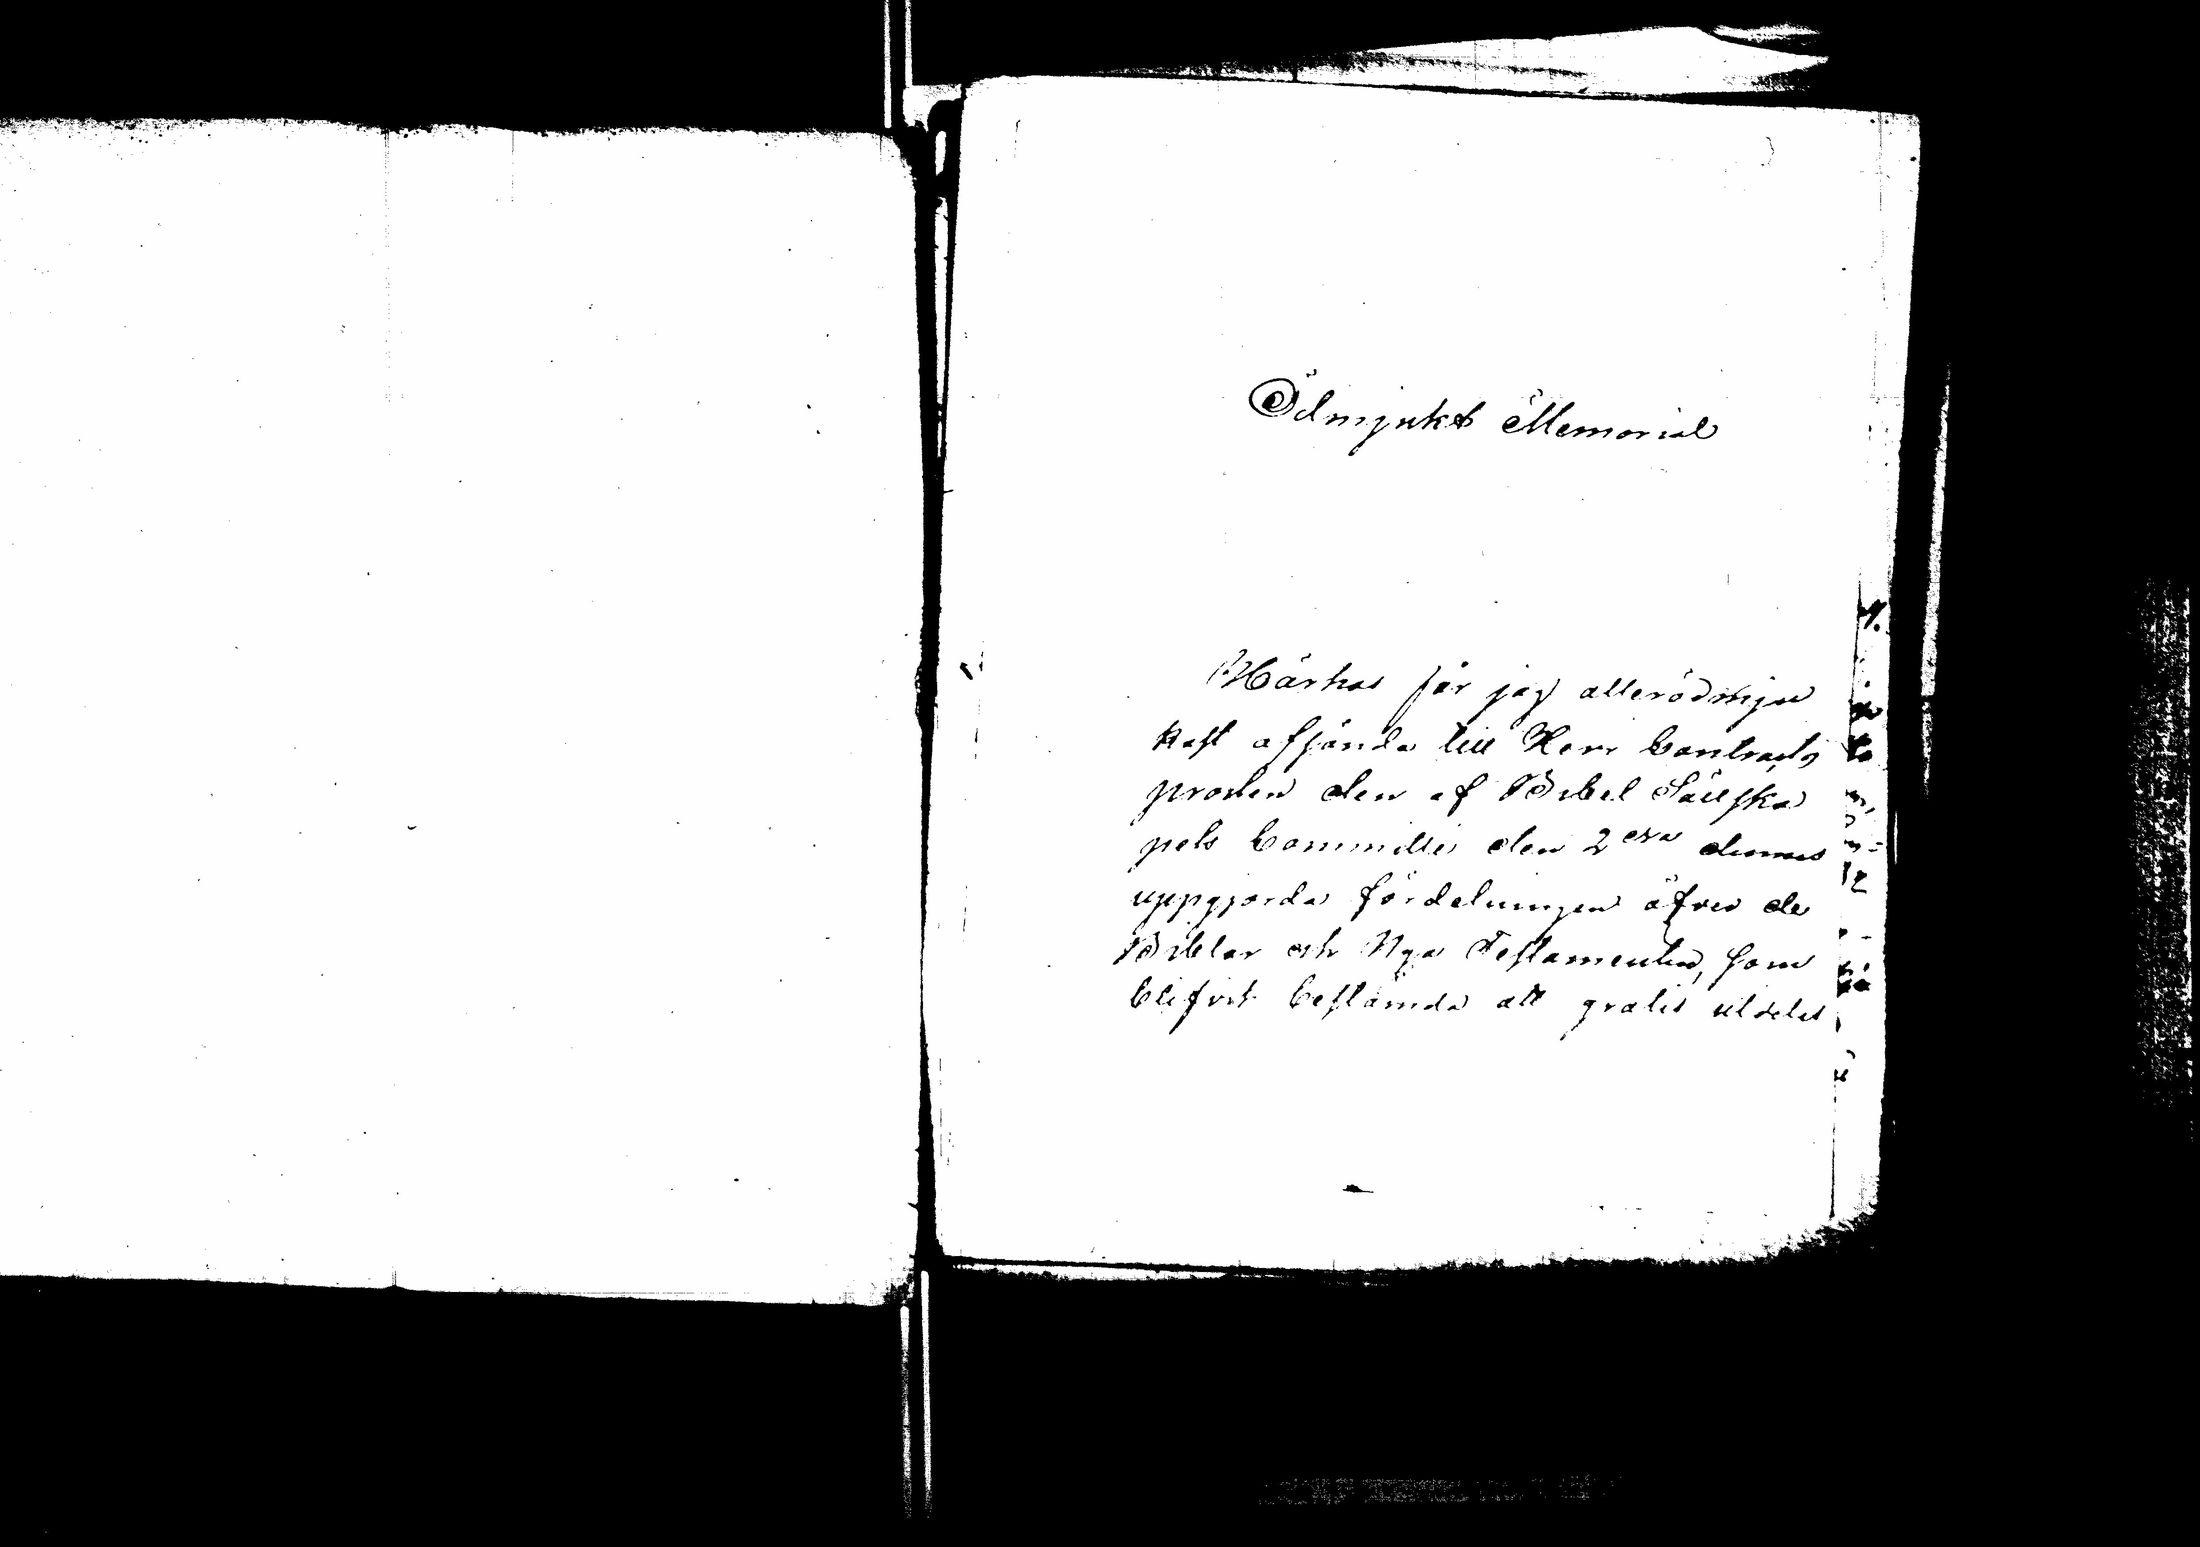 Ödmjukt Memorial
Härhos får jag allerödmju
kast afsända till Herr Contracts
prosten den af Bibel Sällska
pets Committé den 2dra dennes
uppgjorda fördelningen öfver de
Biblar och Nya Testamenten, som
blifvit bestämda att gratis utdelas